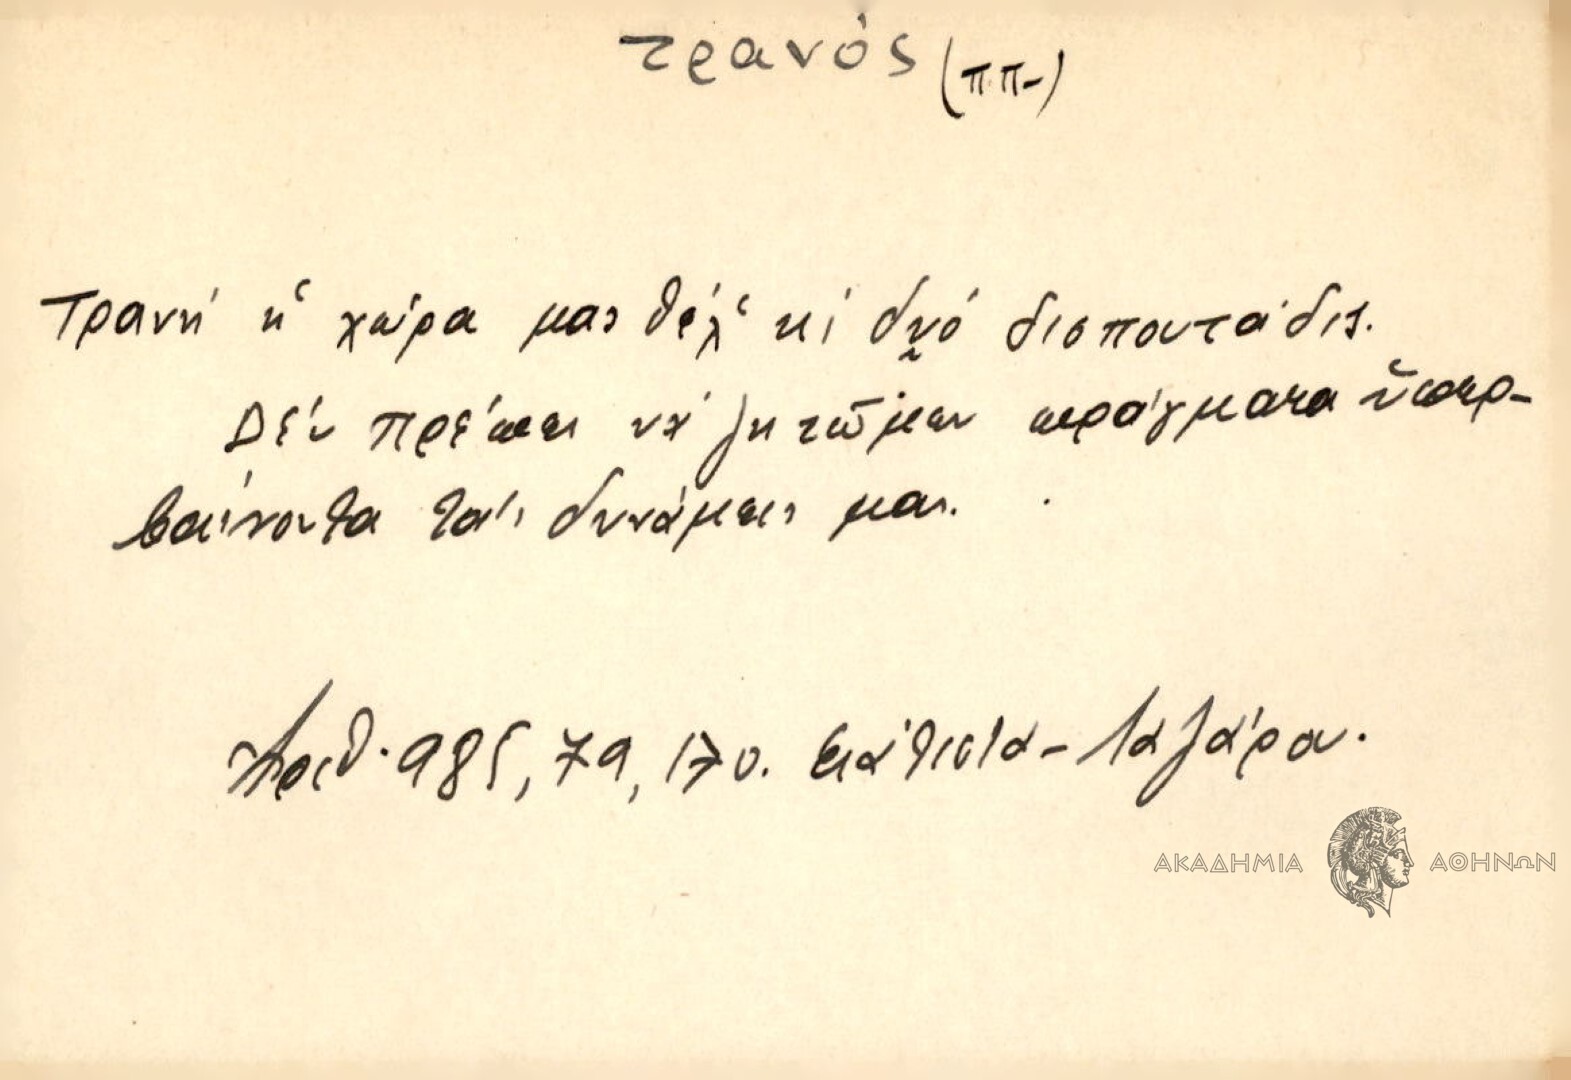 τρανός (ππ-)
Τρανή κ̔ χώρα μας θέλ̔ κι δυ̰ό δισποτάδις.
Δέν πρέπει νά ζητῶμεν πράγματα ὑπερ-
βαίνοντα τάς δυνάμεις μας.
Ἀριθ. 985, 79, 170. Σιάτιστα - Λαζάρου.
ΑΚΑΔΗΜΙΑ ΑΘΗΝΩΝ